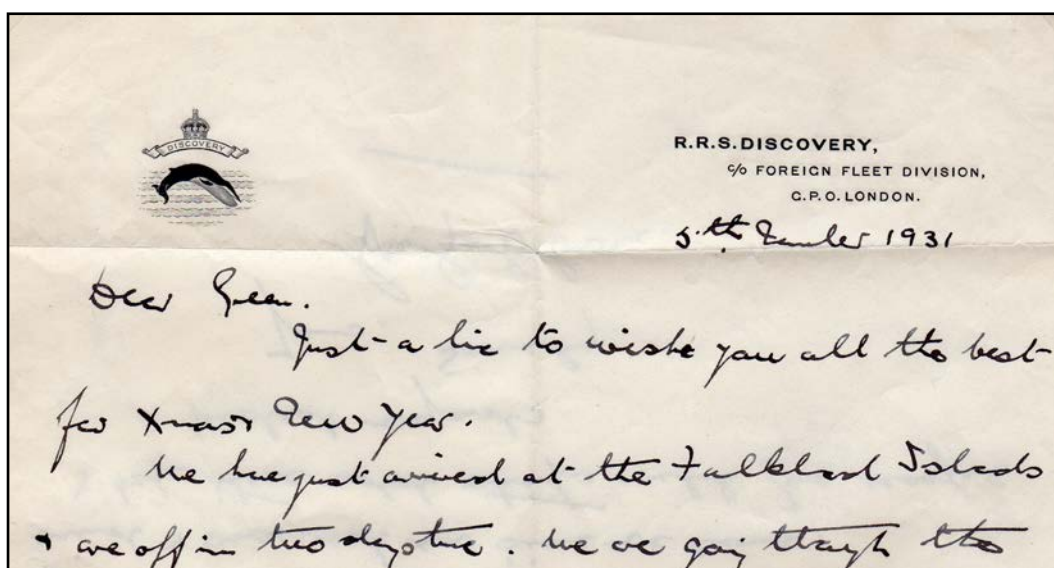 DISCOVERY
R.R.S. DISCOVERY,
c/o FOREIGN FLEET DIVISION,
G.P.O. LONDON.
5th 1931
Dear Green.
Just a line to wish you all the best
for Xmas & New Year.
We have just arrived at the Falkland Islands
& are off in two days time. We are going through the